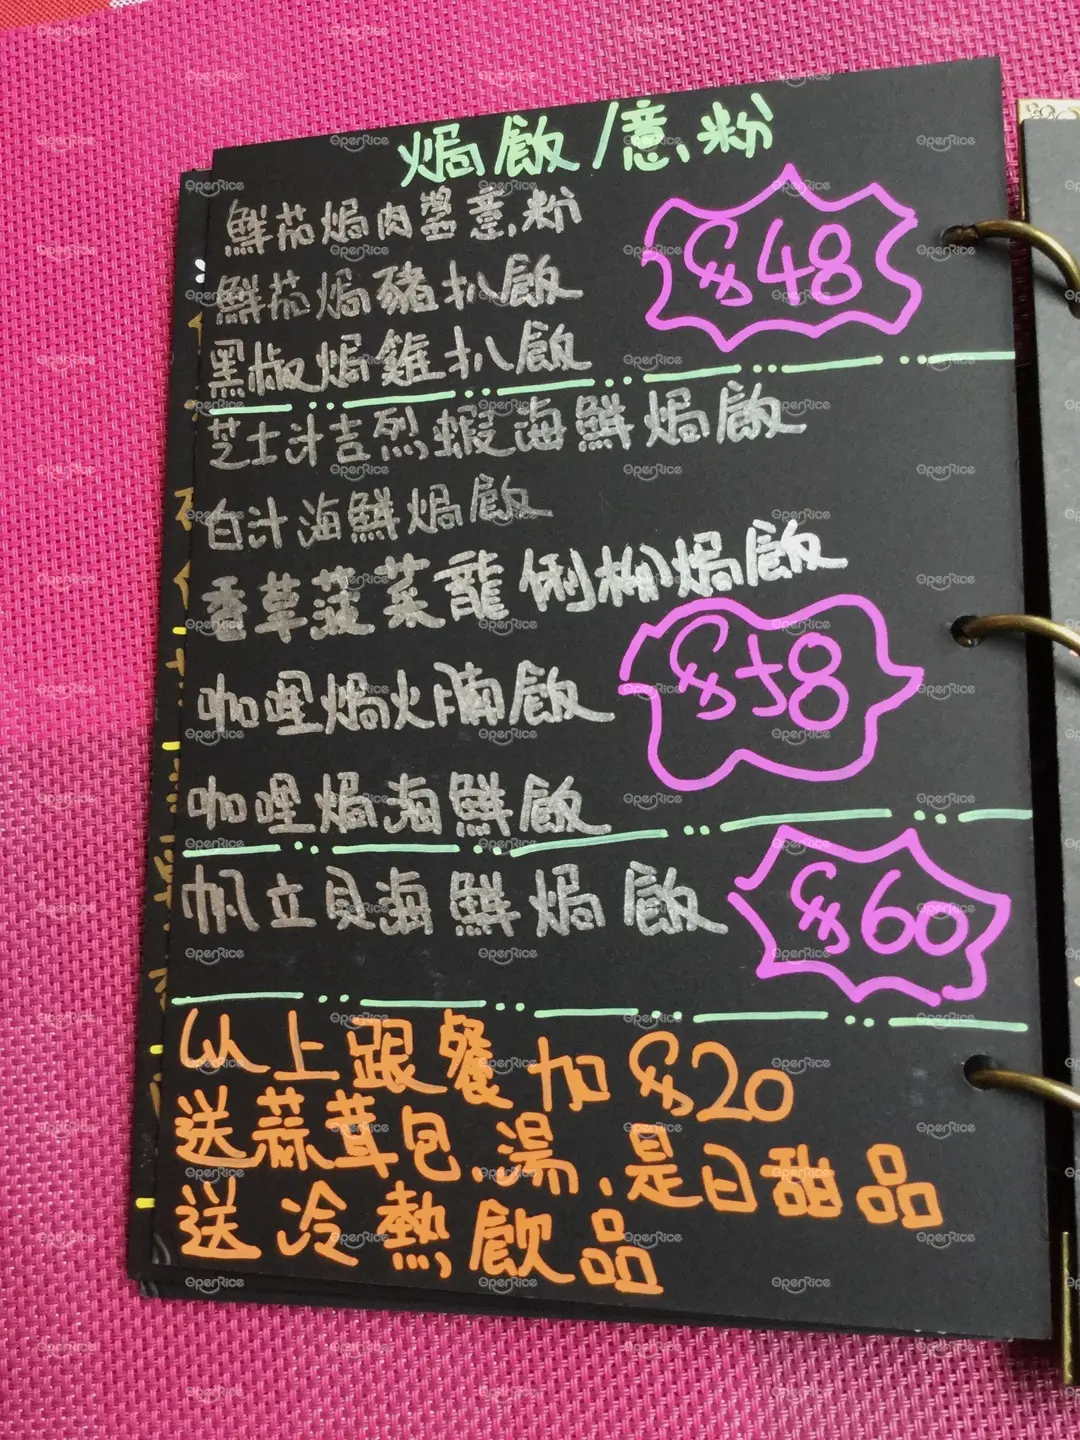 焗飯/意粉
鮮茄焗肉醬意粉
$48
鮮茄焗豬扒飯
黑椒焗雞扒飯
芝士汁吉烈蝦海鮮焗飯
白汁海鮮焗飯
香草菠菜龍俐柳焗飯
$58
咖哩焗火腩飯
咖哩焗海鮮飯
帆立貝海鮮焗飯
$60
以上跟餐加$20
送蒜茸包.湯.是日甜品
送冷熱飲品
OpenRice